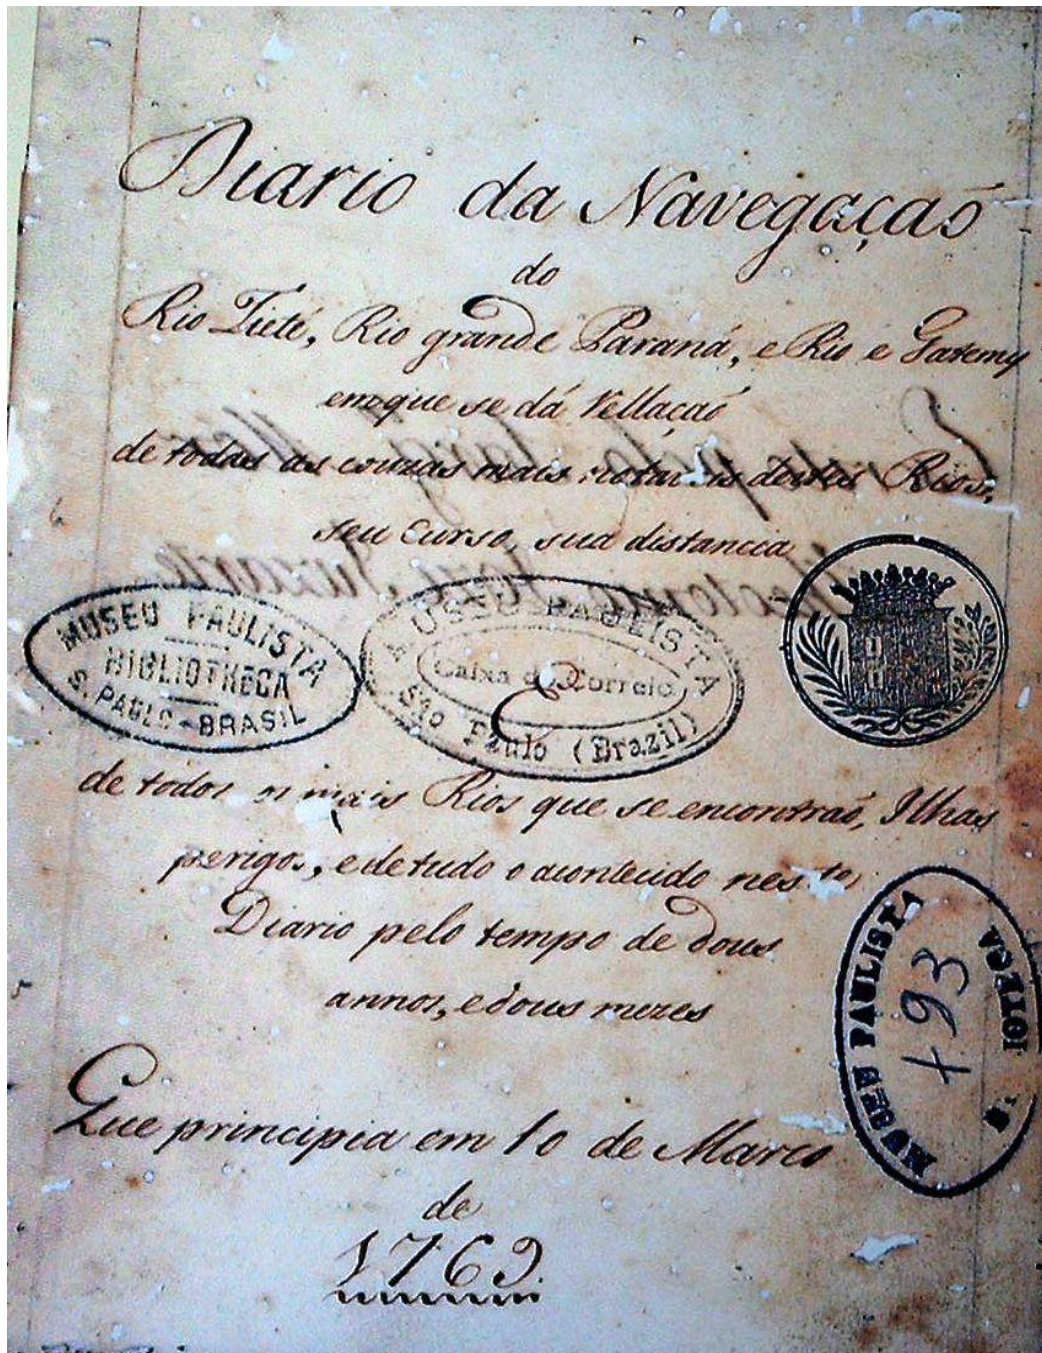 Diario da Navegaçaõ
do
Rio Tieté, Rio grande Paraná, e Rio e Gatemy
em que se dá Rellaçaõ
de todas as couzas mais notaveis destes Rios,
seu curso, sua distancia
MUSEU PAULISTA
BIBLIOTHECA
S. PAULO - BRASIL
MUSEU PAULISTA
Caixa do Correio
São Paulo (Brazil)
e
de todos os mais Rios que se encontraõ, Ilhas
perigos, e de tudo o acontecido neste
Diario pelo tempo de dous
annos, e dous mezes
MUSEU PAULISTA
793
Que principia em 10 de Março
de
1769.